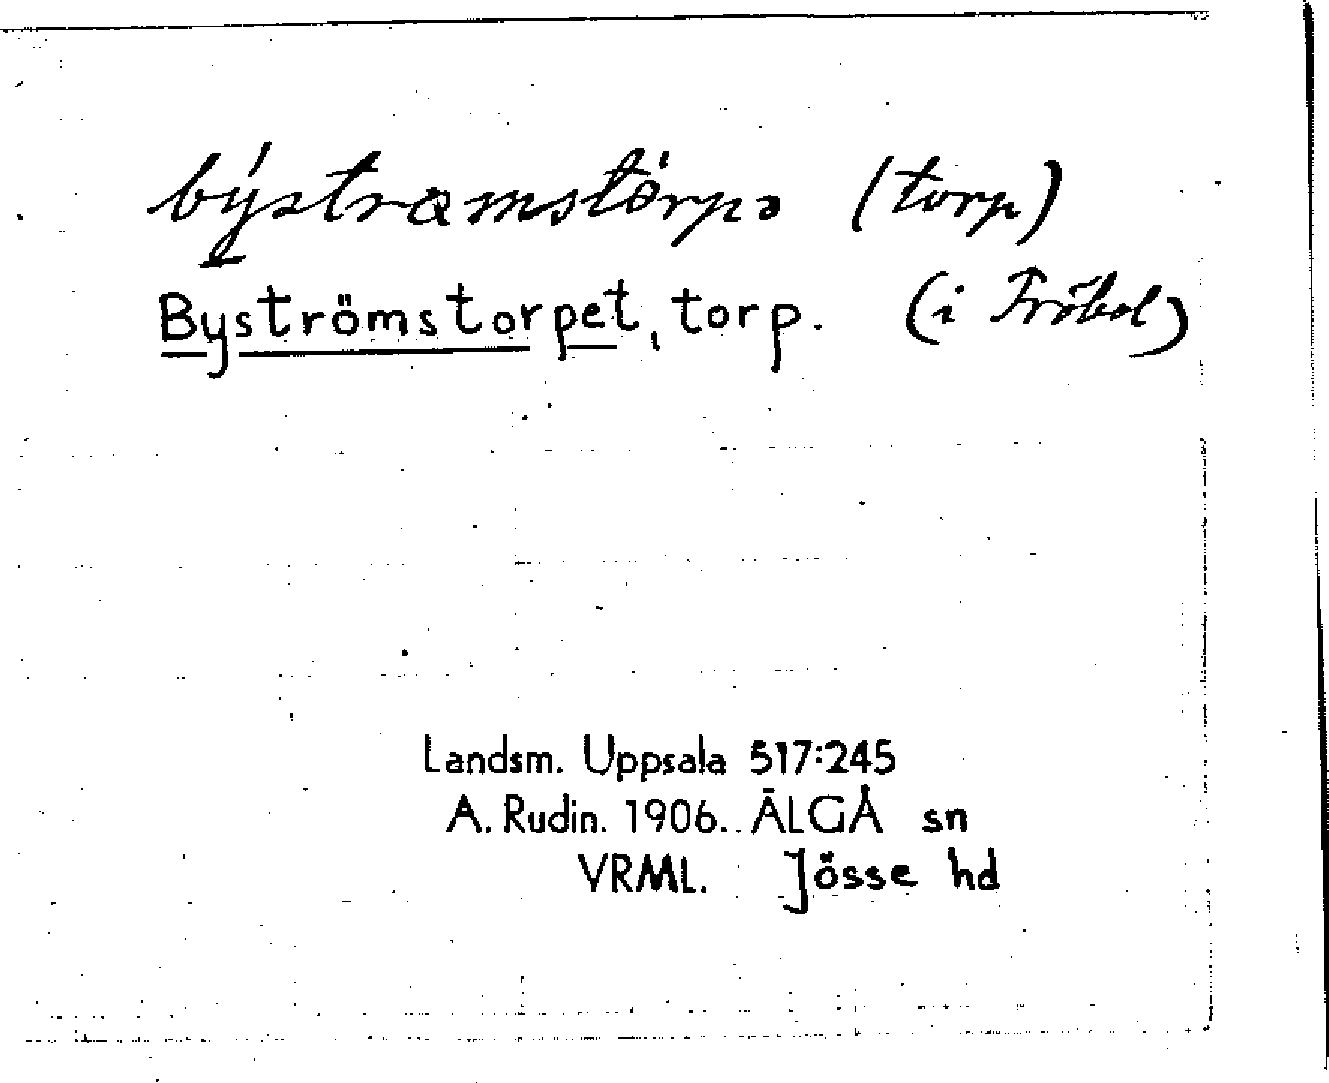 býstramstörpə (torp)
Byströmstorpet, torp. (i Fröbol)
Landsm. Uppsala 517:245
A. Rudin. 1906. ÄLGÅ sn
VRML. Jösse hd